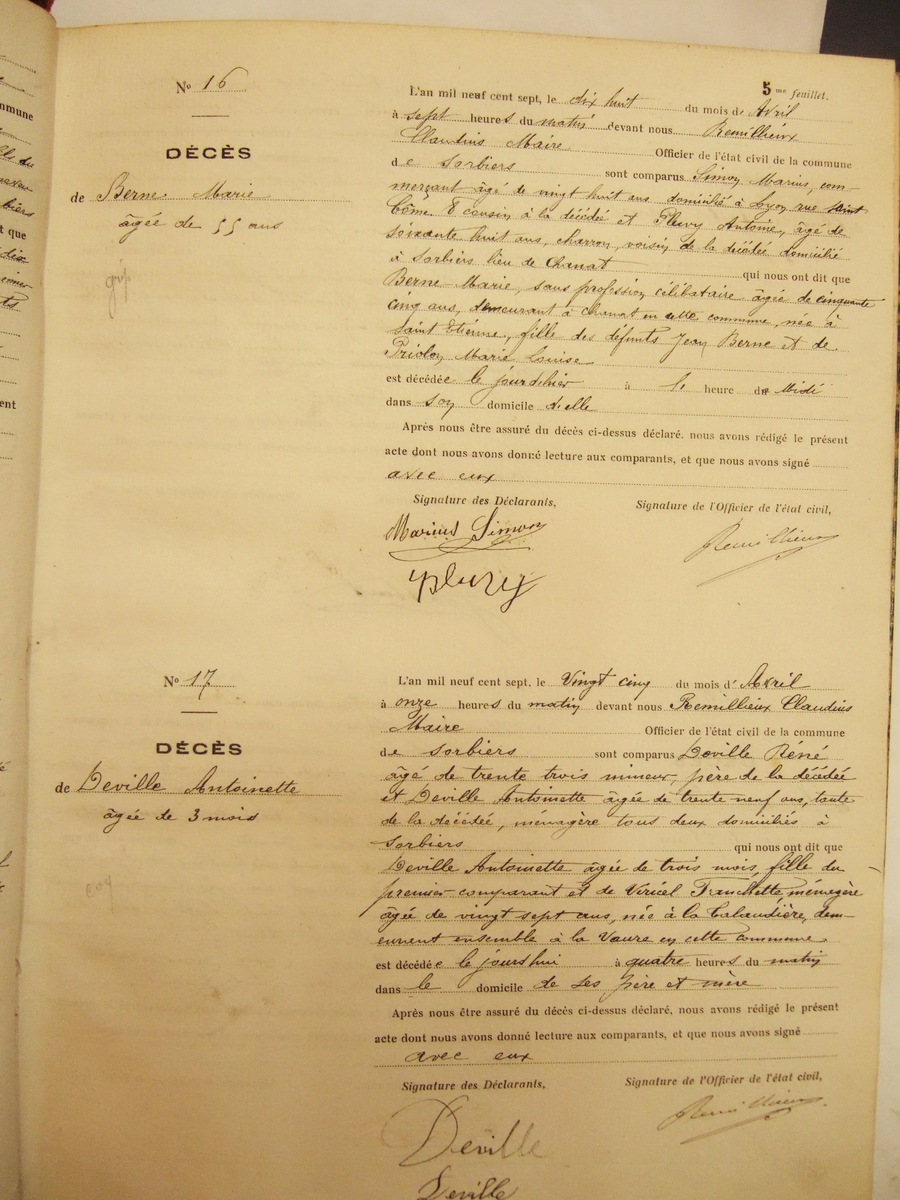 5me feuillet.
No 16
DÉCÈS
de Berne Marie
âgée de 55 ans
L'an mil neuf cent sept, le dix huit du mois de Avril
à sept heures du matin devant nous Remillieux
Claudius Maire Officier de l'état civil de la commune
de Sorbiers sont comparus Simon Marius, com-
merçant âgé de vingt huit ans domicilié à Lyon rue Saint
Côme, 8 cousin à la décédée et Fleury Antoine, âgé de
soixante huit ans, charron, voisin de la décédée domicilié
à Sorbiers lieu de Chanat qui nous ont dit que
Berne Marie, sans profession célibataire âgée de cinquante
cinq ans, demeurant à Chanat en cette commune, née à
Saint Etienne, fille des défunts Jean Berne et de
Priolon Marie Louise
est décédée le jour d'hier à 1 heure de Midi
dans son domicile d'elle
Après nous être assuré du décès ci-dessus déclaré. nous avons rédigé le présent
acte dont nous avons donné lecture aux comparants, et que nous avons signé
avec eux
Signature des Déclarants,
Signature de l'Officier de l'état civil,
Marius Simon
Remillieux
Fleury
No 17
DÉCÈS
de Deville Antoinette
âgée de 3 mois
L'an mil neuf cent sept. le Vingt cinq du mois d'Avril
à onze heures du matin devant nous Remillieux Claudius
Maire Officier de l'état civil de la commune
de Sorbiers sont comparus Deville Réné
âgé de trente trois mineur, père de la décédée
et Deville Antoinette âgée de trente neuf ans, tante
de la décédée, ménagère tous deux domiciliés à
Sorbiers qui nous ont dit que
Deville Antoinette âgée de trois mois, fille du
premier comparant et de Vericel Franchette ménagère
âgée de vingt sept ans, née à la Talaudière, dem-
eurent ensemble à la Vaure en cette commune
est décédée le jourd'hui à quatre heures du matin
dans le domicile de ses père et mère
Après nous être assuré du décès ci-dessus déclaré, nous avons rédigé le présent
acte dont nous avons donné lecture aux comparants, et que nous avons signé
avec eux
Signature des Déclarants,
Signature de l'Officier de l'état civil,
Remillieux
Deville
Deville